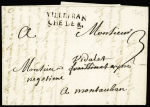 VILLEFRAN
CHE DE R.
A Monsieur
Monsieur Vidalet
negotiant
a montauban
3